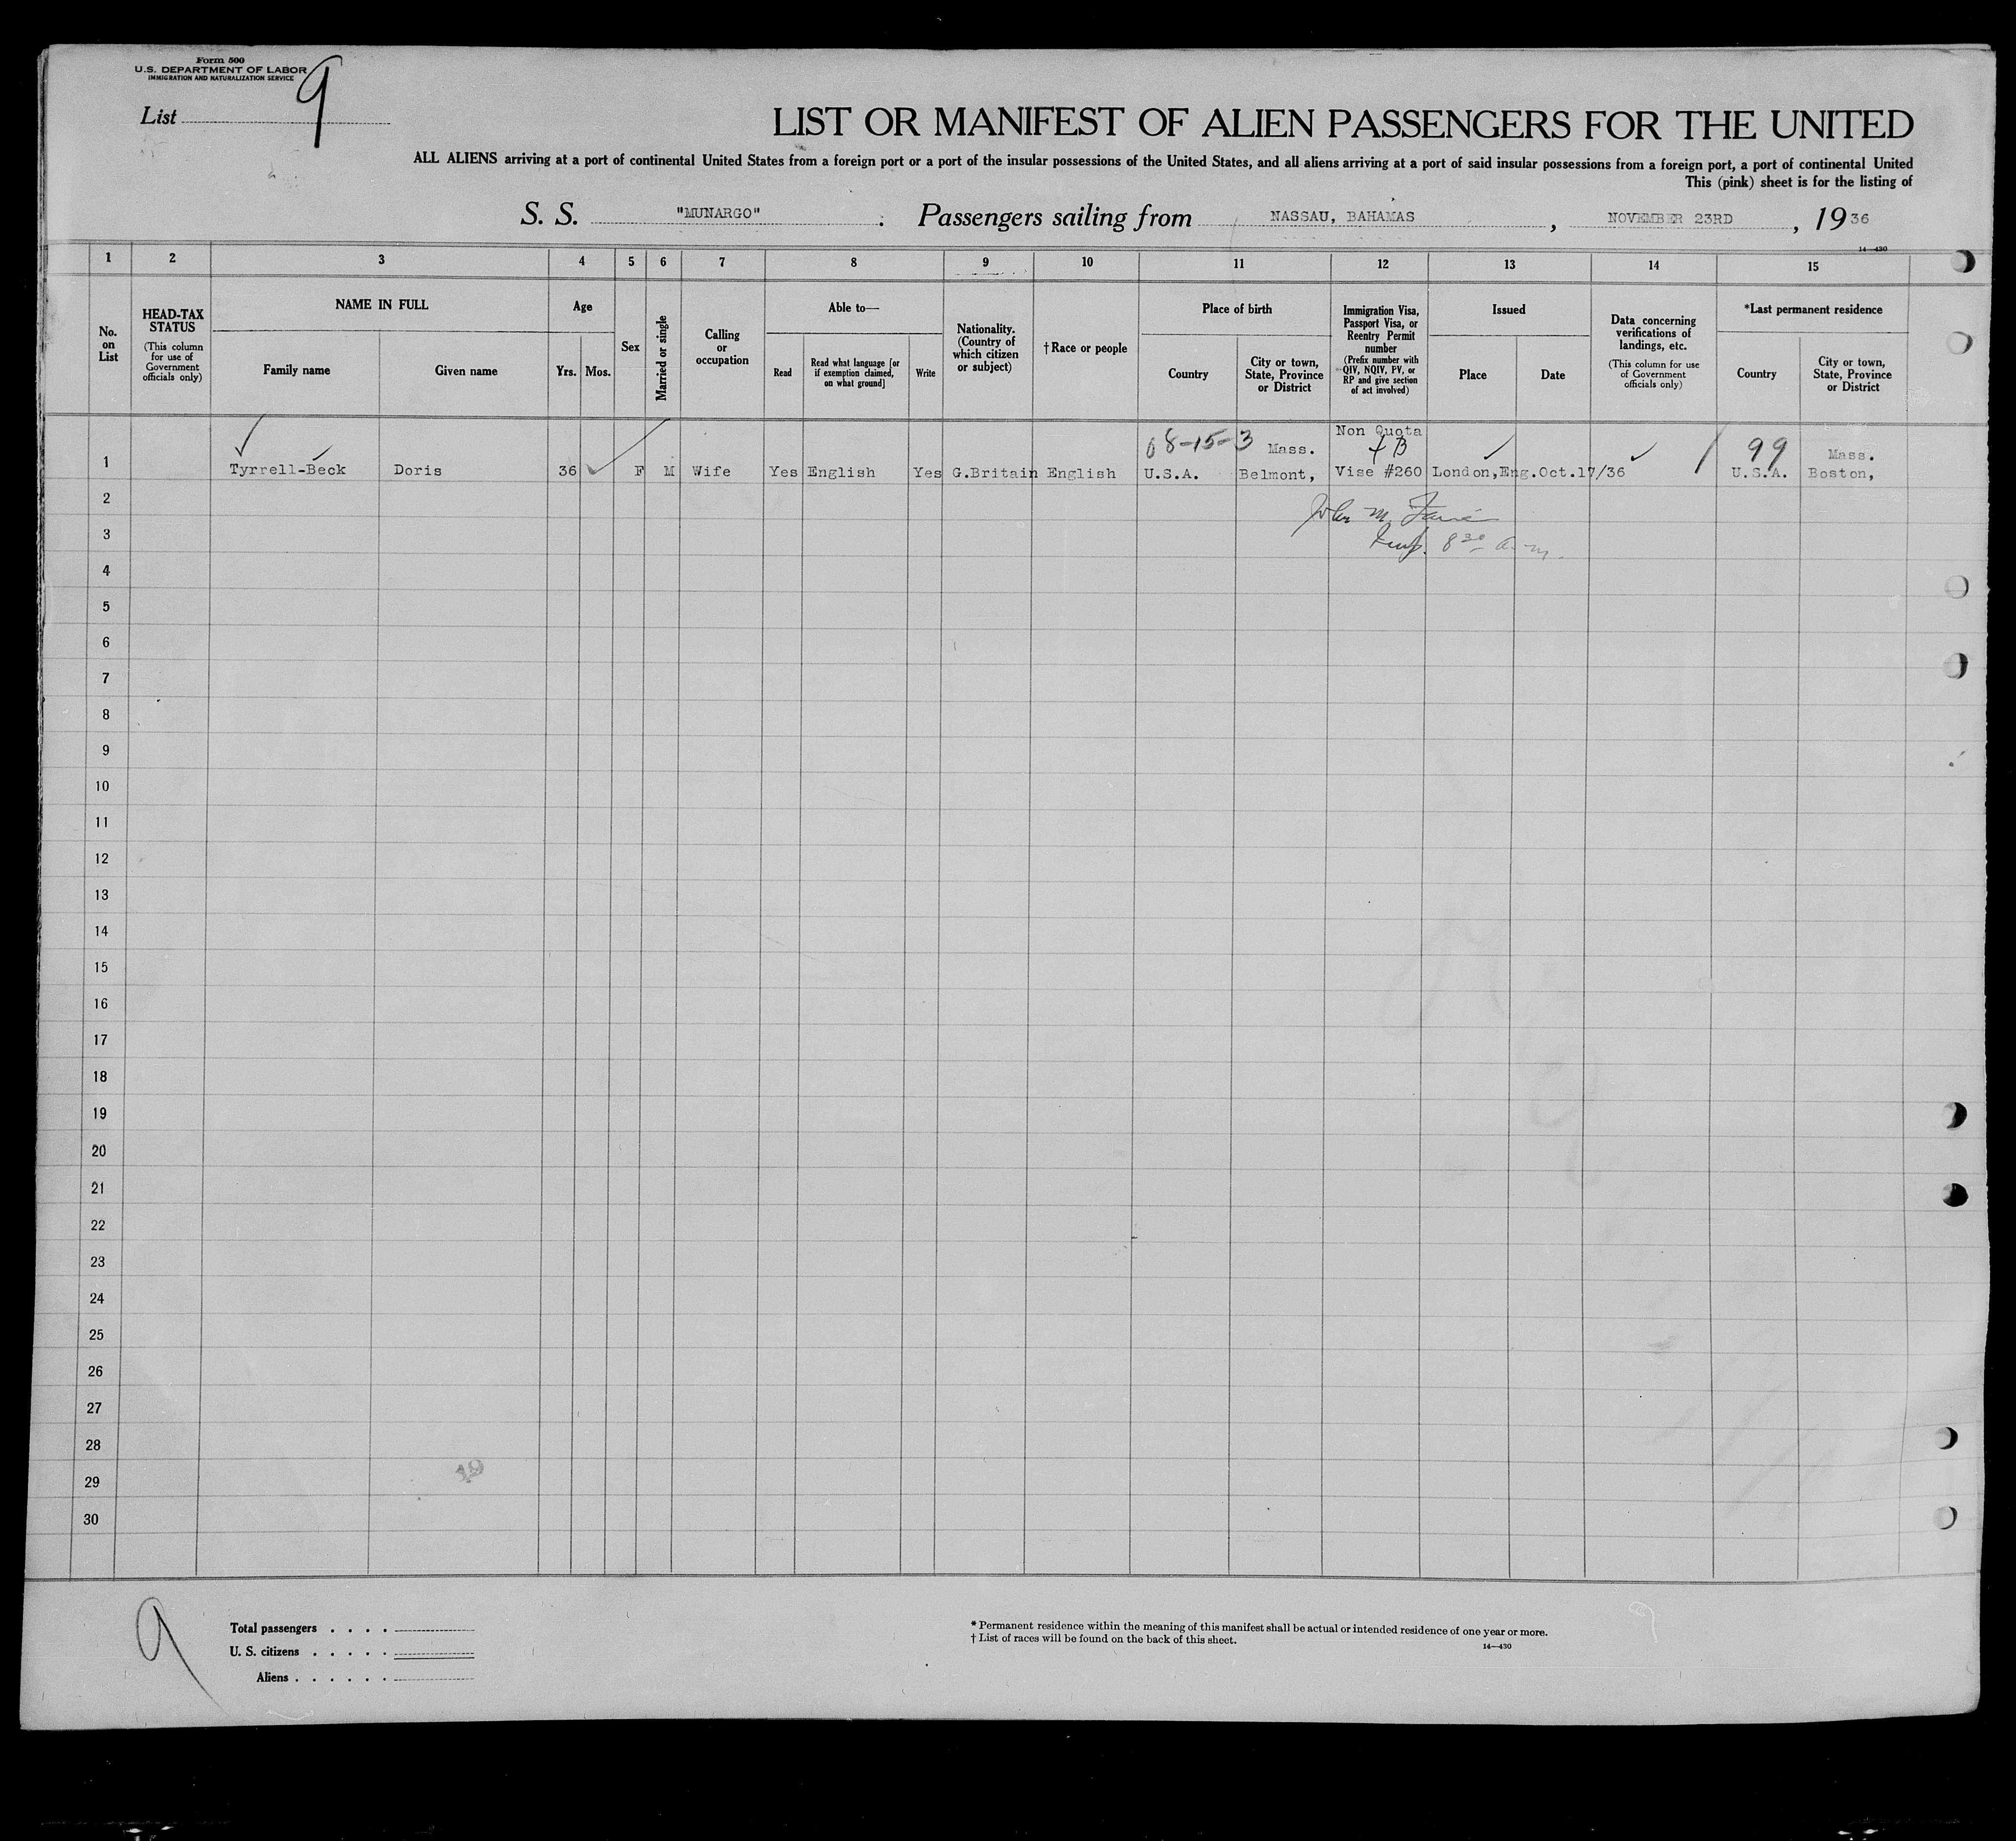 Form 500
U.S. DEPARTMENT OF LABOR
IMMIGRATION AND NATURALIZATION SERVICE
List 9
LIST OR MANIFEST OF ALIEN PASSENGERS FOR THE UNITED
ALL ALIENS arriving at a port of continental United States from a foreign port or a port of the insular possessions of the United States, and all aliens arriving at a port of said insular possessions from a foreign port, a port of continental United
This (pink) sheet is for the listing of
S. S. "MUNARGO" Passengers sailing from NASSAU, BAHAMAS, NOVEMBER 23RD, 1936
14—430
1 2 3 4 5 6 7 8 9 10 11 12 13 14 15
No. on List
HEAD-TAX STATUS
(This column for use of Government officials only)
NAME IN FULL
Family name Given name
Age
Yrs. Mos.
Sex
Married or single
Calling or occupation
Able to—
Read
Read what language [or if exemption claimed, on what ground]
Write
Nationality. (Country of which citizen or subject)
†Race or people
Place of birth
Country
City or town, State, Province or District
Immigration Visa, Passport Visa, or Reentry Permit number
(Prefix number with QIV, NQIV, PV, or RP and give section of act involved)
Issued
Place Date
Data concerning verifications of landings, etc.
(This column for use of Government officials only)
*Last permanent residence
Country
City or town, State, Province or District
Non Quota
08-15-3 Mass. 4B 99 Mass.
1 Tyrrell-Beck Doris 36 F M Wife Yes English Yes G.Britain English U.S.A. Belmont, Vise #260 London,Eng.Oct.17/36 U.S.A. Boston,
2
John M.
3
Insp. 8 30 a.m.
4
5
6
7
8
9
10
11
12
13
14
15
16
17
18
19
20
21
22
23
24
25
26
27
28
29
19
30
9
Total passengers . . . .
U. S. citizens . . . . .
Aliens . . . . . .
* Permanent residence within the meaning of this manifest shall be actual or intended residence of one year or more.
† List of races will be found on the back of this sheet.
14—430